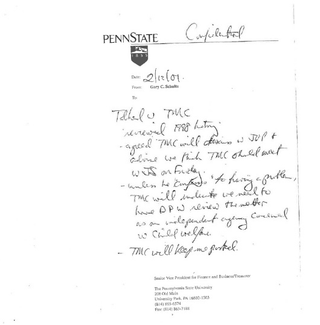 PENNSTATE
Confidential
Date: 2/12/01
From: Gary C. Schultz
Talked w TMC
- reviewed 1998 history
- agreed TMC will discuss w JVP &
advise we think TMC should meet
w JS on Friday.
- unless he "confesses" to having a problem,
TMC will indicate we need to
have DPW review the matter
as an independent agency concerned
w child welfare
- TMC will keep me posted.
Senior Vice President for Finance and Business/Treasurer
The Pennsylvania State University
208 Old Main
University Park, PA